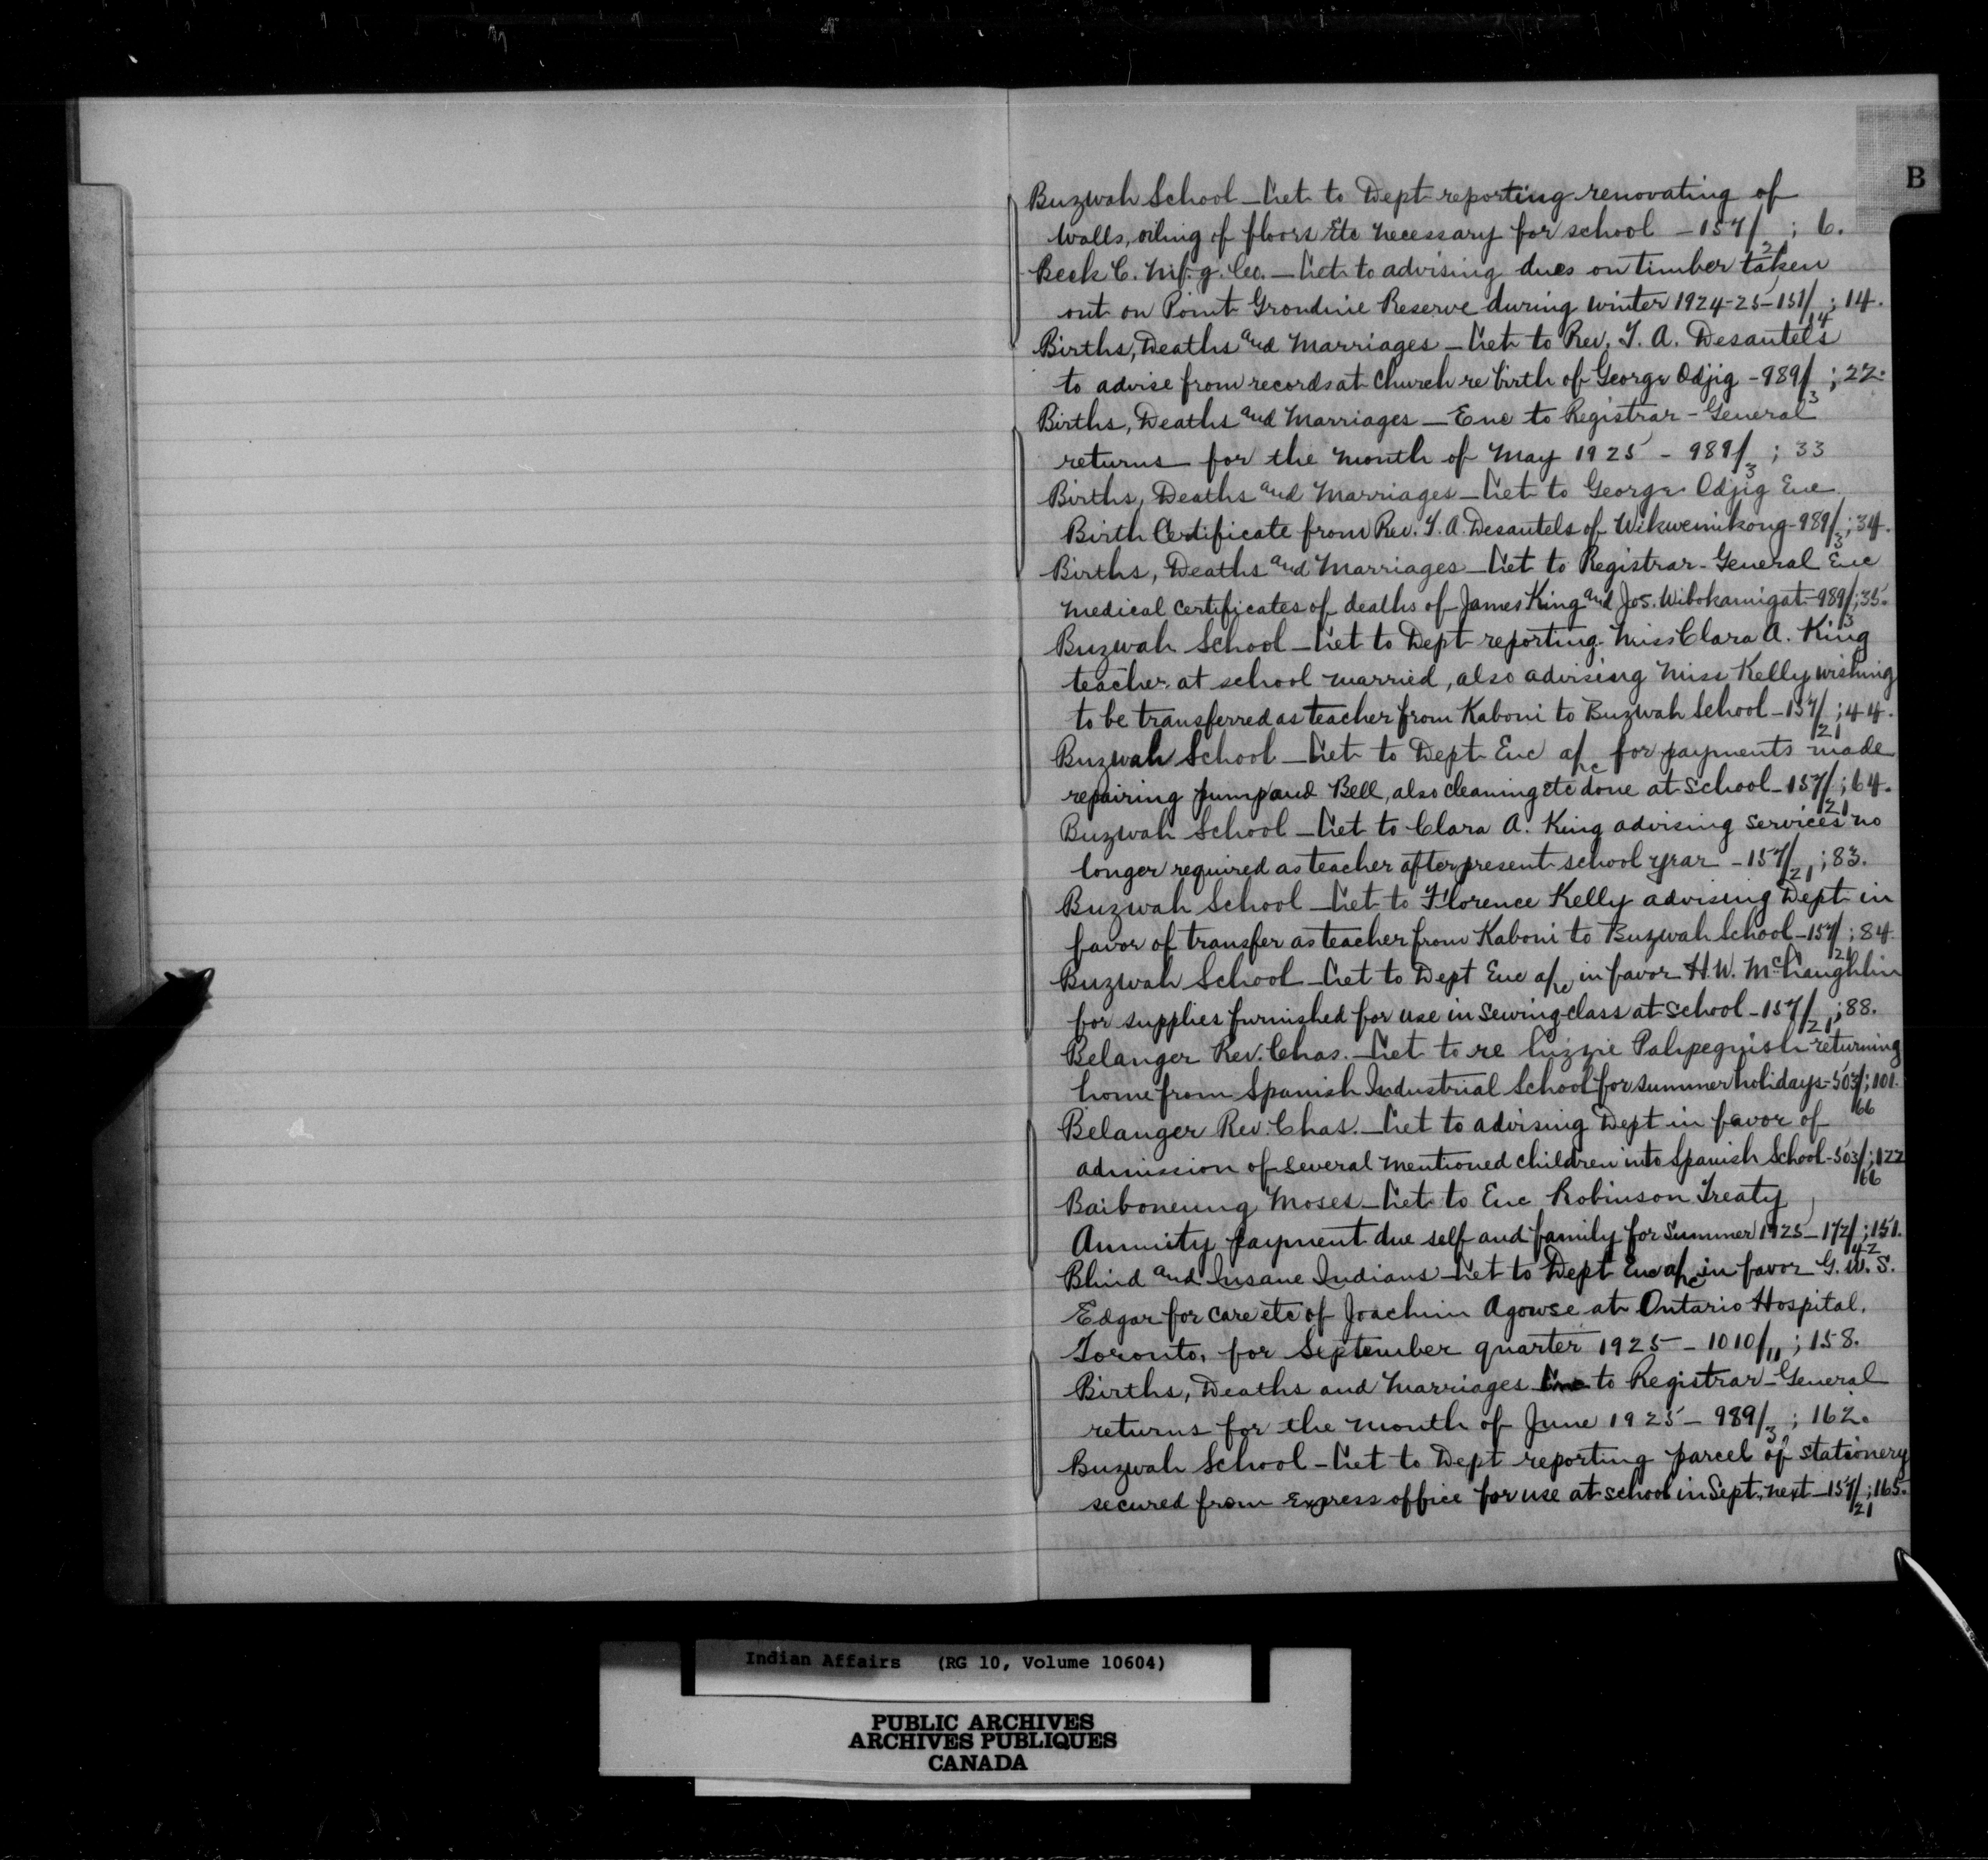 B
Buzwah School - Let to Dept reporting renovating of
walls, oiling of floors Etc necessary for school - 157/21 ; 6.
Beck C. Mf.g. Co. - Let to advising dues on timber taken
out on Point Grondine Reserve during winter 1924-25 - 151/14 ; 14.
Births, Deaths and Marriages - Let to Rev. T. A. Desautels
to advise from records at Church re birth of George Odjig - 989/3 ; 22.
Births, Deaths and Marriages - Enc to Registrar-General
returns for the month of May 1925 - 989/3 ; 33
Births, Deaths and Marriages - Let to George Odjig Enc
Birth Certificate from Rev. T. A. Desautels of Wikwemikong - 989/3 ; 34.
Births, Deaths and Marriages - Let to Registrar-General Enc
Medical certificates of deaths of James King and Jos. Wibokamigat - 989/3 ; 35.
Buzwah School - Let to Dept reporting Miss Clara A. King
teacher at school married, also advising Miss Kelly wishing
to be transferred as teacher from Kaboni to Buzwah School - 157/21 ; 44.
Buzwah School - Let to Dept Enc a/c for payments made
repairing pump and Bell, also cleaning Etc done at School - 157/21 ; 64.
Buzwah School - Let to Clara A. King advising services no
longer required as teacher after present school year - 157/21 ; 83.
Buzwah School - Let to Florence Kelly advising Dept in
favor of transfer as teacher from Kaboni to Buzwah School - 157/21 ; 84.
Buzwah School - Let to Dept Enc a/c in favor H. W. McLaughlin
for supplies furnished for use in Sewing-class at School - 157/21 ; 88.
Belanger Rev. Chas. - Let to re Lizzie Pahpeguish returning
home from Spanish Industrial School for summer holidays - 503/66 ; 101.
Belanger Rev. Chas. - Let to advising Dept in favor of
admission of several mentioned children into Spanish School - 503/66 ; 122
Baiboneung Moses - Let to Enc Robinson Treaty
Annuity payment due self and family for Summer 1925 - 172/42 ; 151.
Blind and Insane Indians - Let to Dept Enc a/c in favor G. W. S.
Edgar for care etc of Joachim Agowse at Ontario Hospital,
Toronto, for September quarter 1925 - 1010/11 ; 158.
Births, Deaths and Marriages - Enc to Registrar-General
returns for the month of June 1925 - 989/3 ; 162.
Buzwah School - Let to Dept reporting parcel of stationery
secured from Express office for use at school in Sept. next - 157/21 ; 165.
Indian Affairs (RG 10, Volume 10604)
PUBLIC ARCHIVES
ARCHIVES PUBLIQUES
CANADA